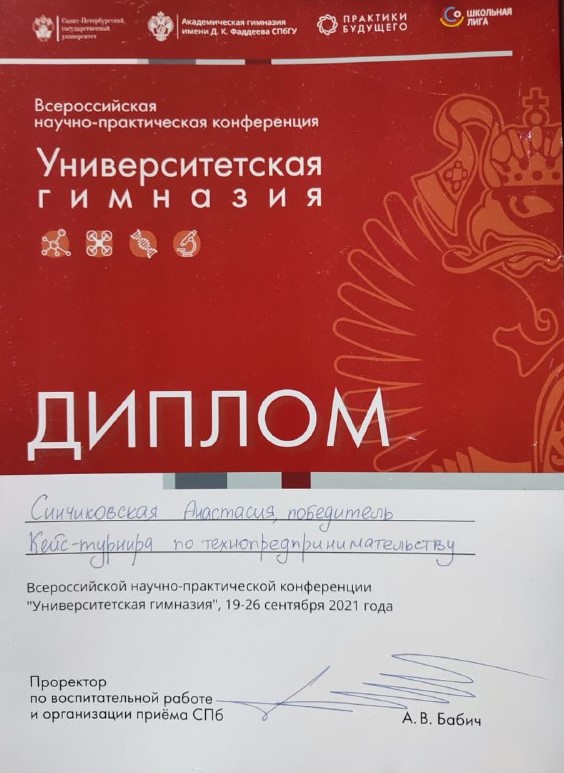 Санкт-Петербургский
государственный
университет
Академическая гимназия
имени Д. К. Фаддеева СПбГУ
ПРАКТИКИ
БУДУЩЕГО
ШКОЛЬНАЯ
ЛИГА
Всероссийская
научно-практическая конференция
Университетская
гимназия
ДИПЛОМ
Синчиковская Анастасия, победитель
Кейс-турнира по технопредпринимательству
Всероссийской научно-практической конференции
"Университетская гимназия", 19-26 сентября 2021 года
Проректор
по воспитательной работе
и организации приёма СПб
А. В. Бабич